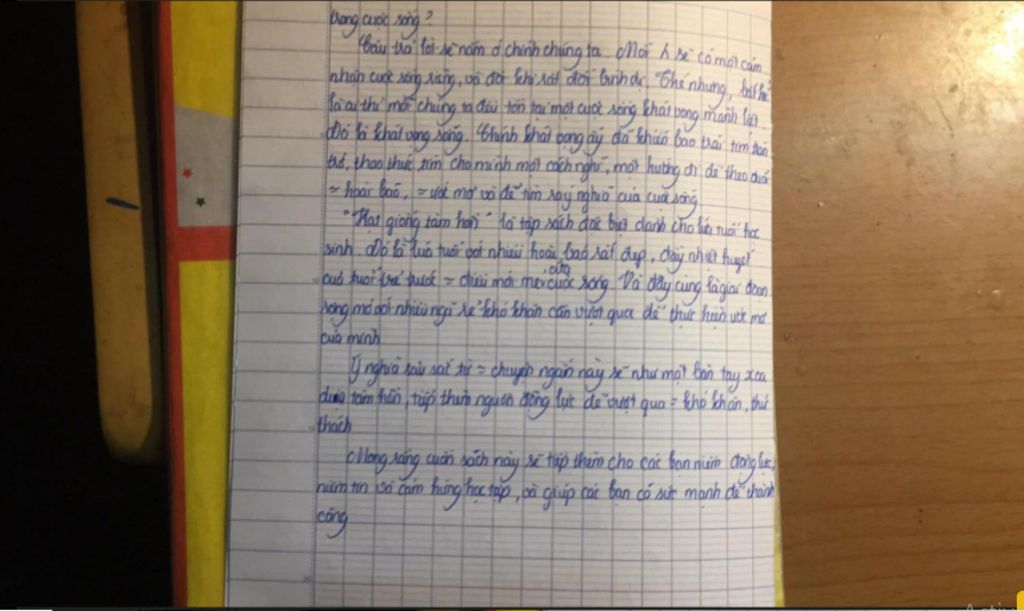 trong cuộc sống?
Câu trả lời sẽ nằm ở chính chúng ta. Mỗi sẽ có một cảm
nhận cuộc sống riêng, và đôi khi rất đỗi bình dị. Thế nhưng, bất kể
là ai thì mỗi chúng ta đều tồn tại một cuộc sống khát vọng mãnh liệt
Đó là khát vọng sống. Chính khát vọng ấy đã khiến bao trái tim trăn
trở, thao thức, tìm cho mình một cách nghĩ, một hướng đi để theo đuổi
= hoài bão, = ước mơ và để tìm ra ý nghĩa của cuộc sống
"Hạt giống tâm hồn" là tập sách đặc biệt dành cho lứa tuổi học
sinh. Đó là lứa tuổi với nhiều hoài bão rất đẹp, đầy nhiệt huyết
của tuổi trẻ trước = điều mới mẻ của cuộc sống. Và đây cũng là giai đoạn
nhiều sẽ khó khăn cần vượt qua để thực hiện ước mơ
của mình
Ý nghĩa sâu sắc từ = chuyện ngắn này sẽ như một bàn tay xoa
dịu tâm hồn, tiếp thêm nguồn động lực để vượt qua = khó khăn, thử
thách
Mong rằng cuốn sách này sẽ tiếp thêm cho các bạn niềm động lực,
niềm tin và cảm hứng học tập, và giúp các bạn có sức mạnh để thành
công